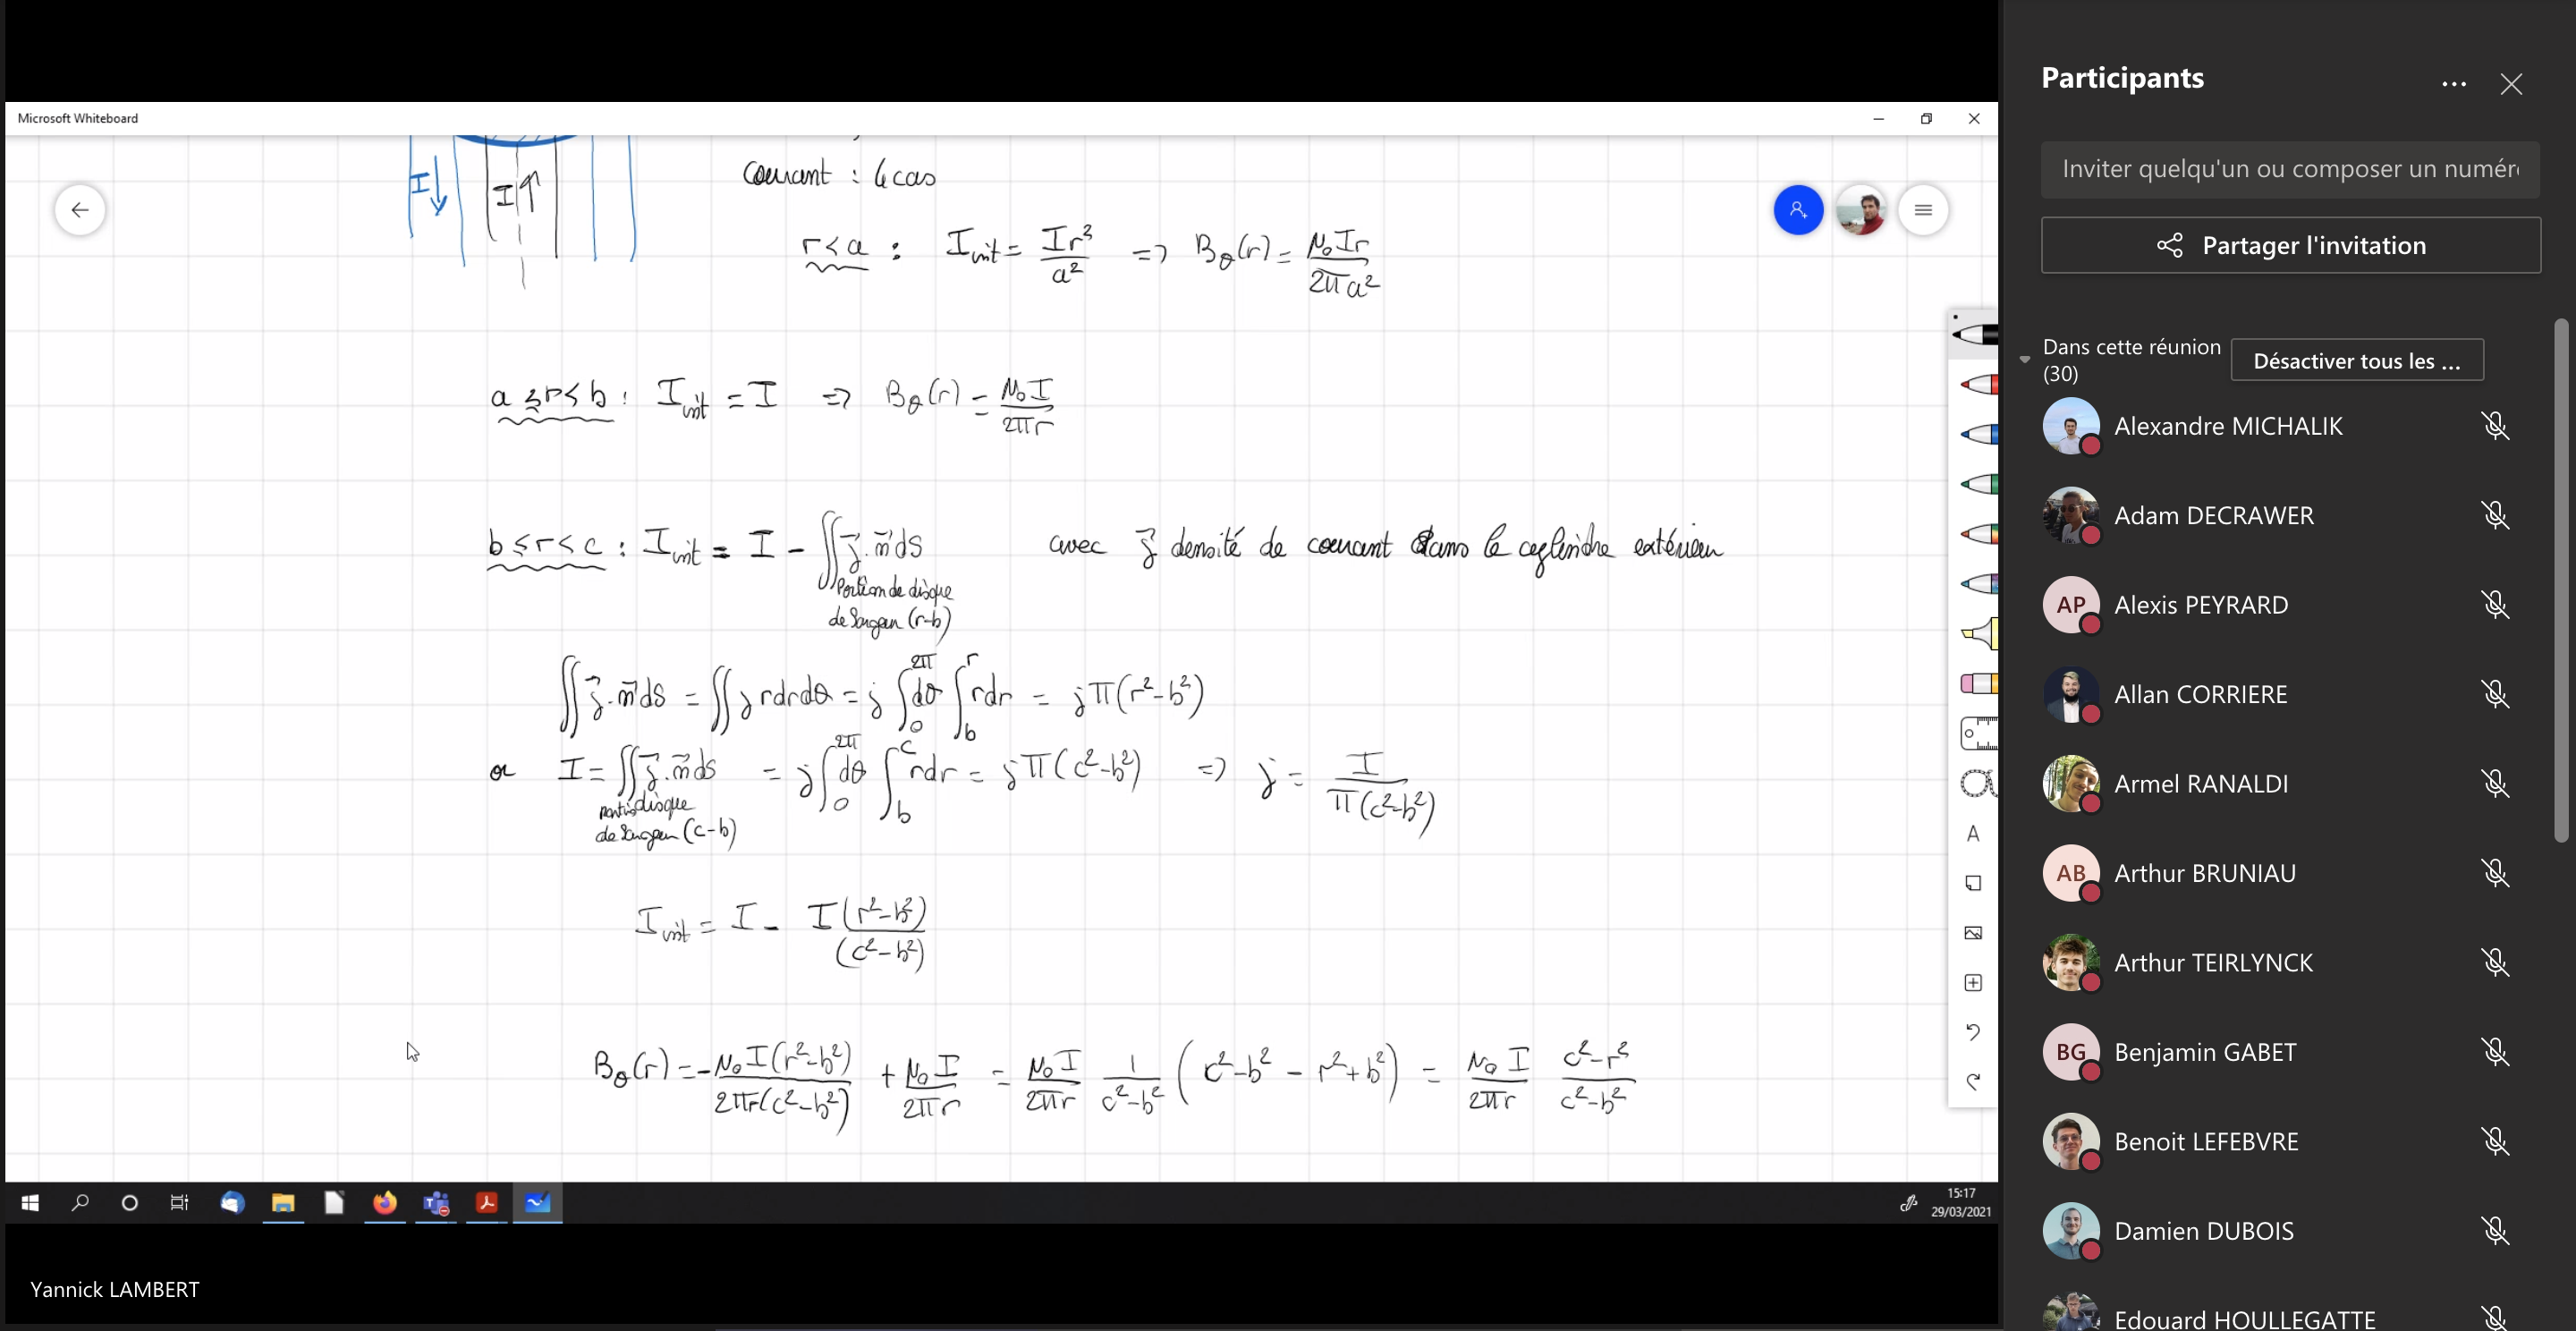 Microsoft Whiteboard
I↓
I↑
Courant : 4 cas
r < a : I_int = Ir³/a² => B_θ(r) = μ₀Ir/2πa²
a ≤ r < b : I_int = I => B_θ(r) = μ₀I/2πr
b ≤ r < c : I_int = I - ∬ j⃗.n⃗ dS avec j⃗ densité de courant dans le cylindre extérieur
Portion de disque
de largeur (r-b)
∬ j⃗.n⃗ dS = ∬ j rdrdθ = j ∫₀^2π dθ ∫_b^r rdr = jπ(r²-b²)
or I = ∬ j⃗.n⃗ dS = j ∫₀^2π dθ ∫_b^c rdr = jπ(c²-b²) => j = I/π(c²-b²)
disque
de largeur (c-b)
I_int = I - I(r²-b²)/(c²-b²)
B_θ(r) = -μ₀I(r²-b²)/2πr(c²-b²) + μ₀I/2πr = μ₀I/2πr 1/c²-b² (c²-b² - r²+b²) = μ₀I/2πr c²-r²/c²-b²
A
15:17
29/03/2021
Yannick LAMBERT
Participants
Inviter quelqu'un ou composer un numér
Partager l'invitation
Dans cette réunion
(30)
Désactiver tous les ...
Alexandre MICHALIK
Adam DECRAWER
AP Alexis PEYRARD
Allan CORRIERE
Armel RANALDI
AB Arthur BRUNIAU
Arthur TEIRLYNCK
BG Benjamin GABET
Benoit LEFEBVRE
Damien DUBOIS
Edouard HOULLEGATTE